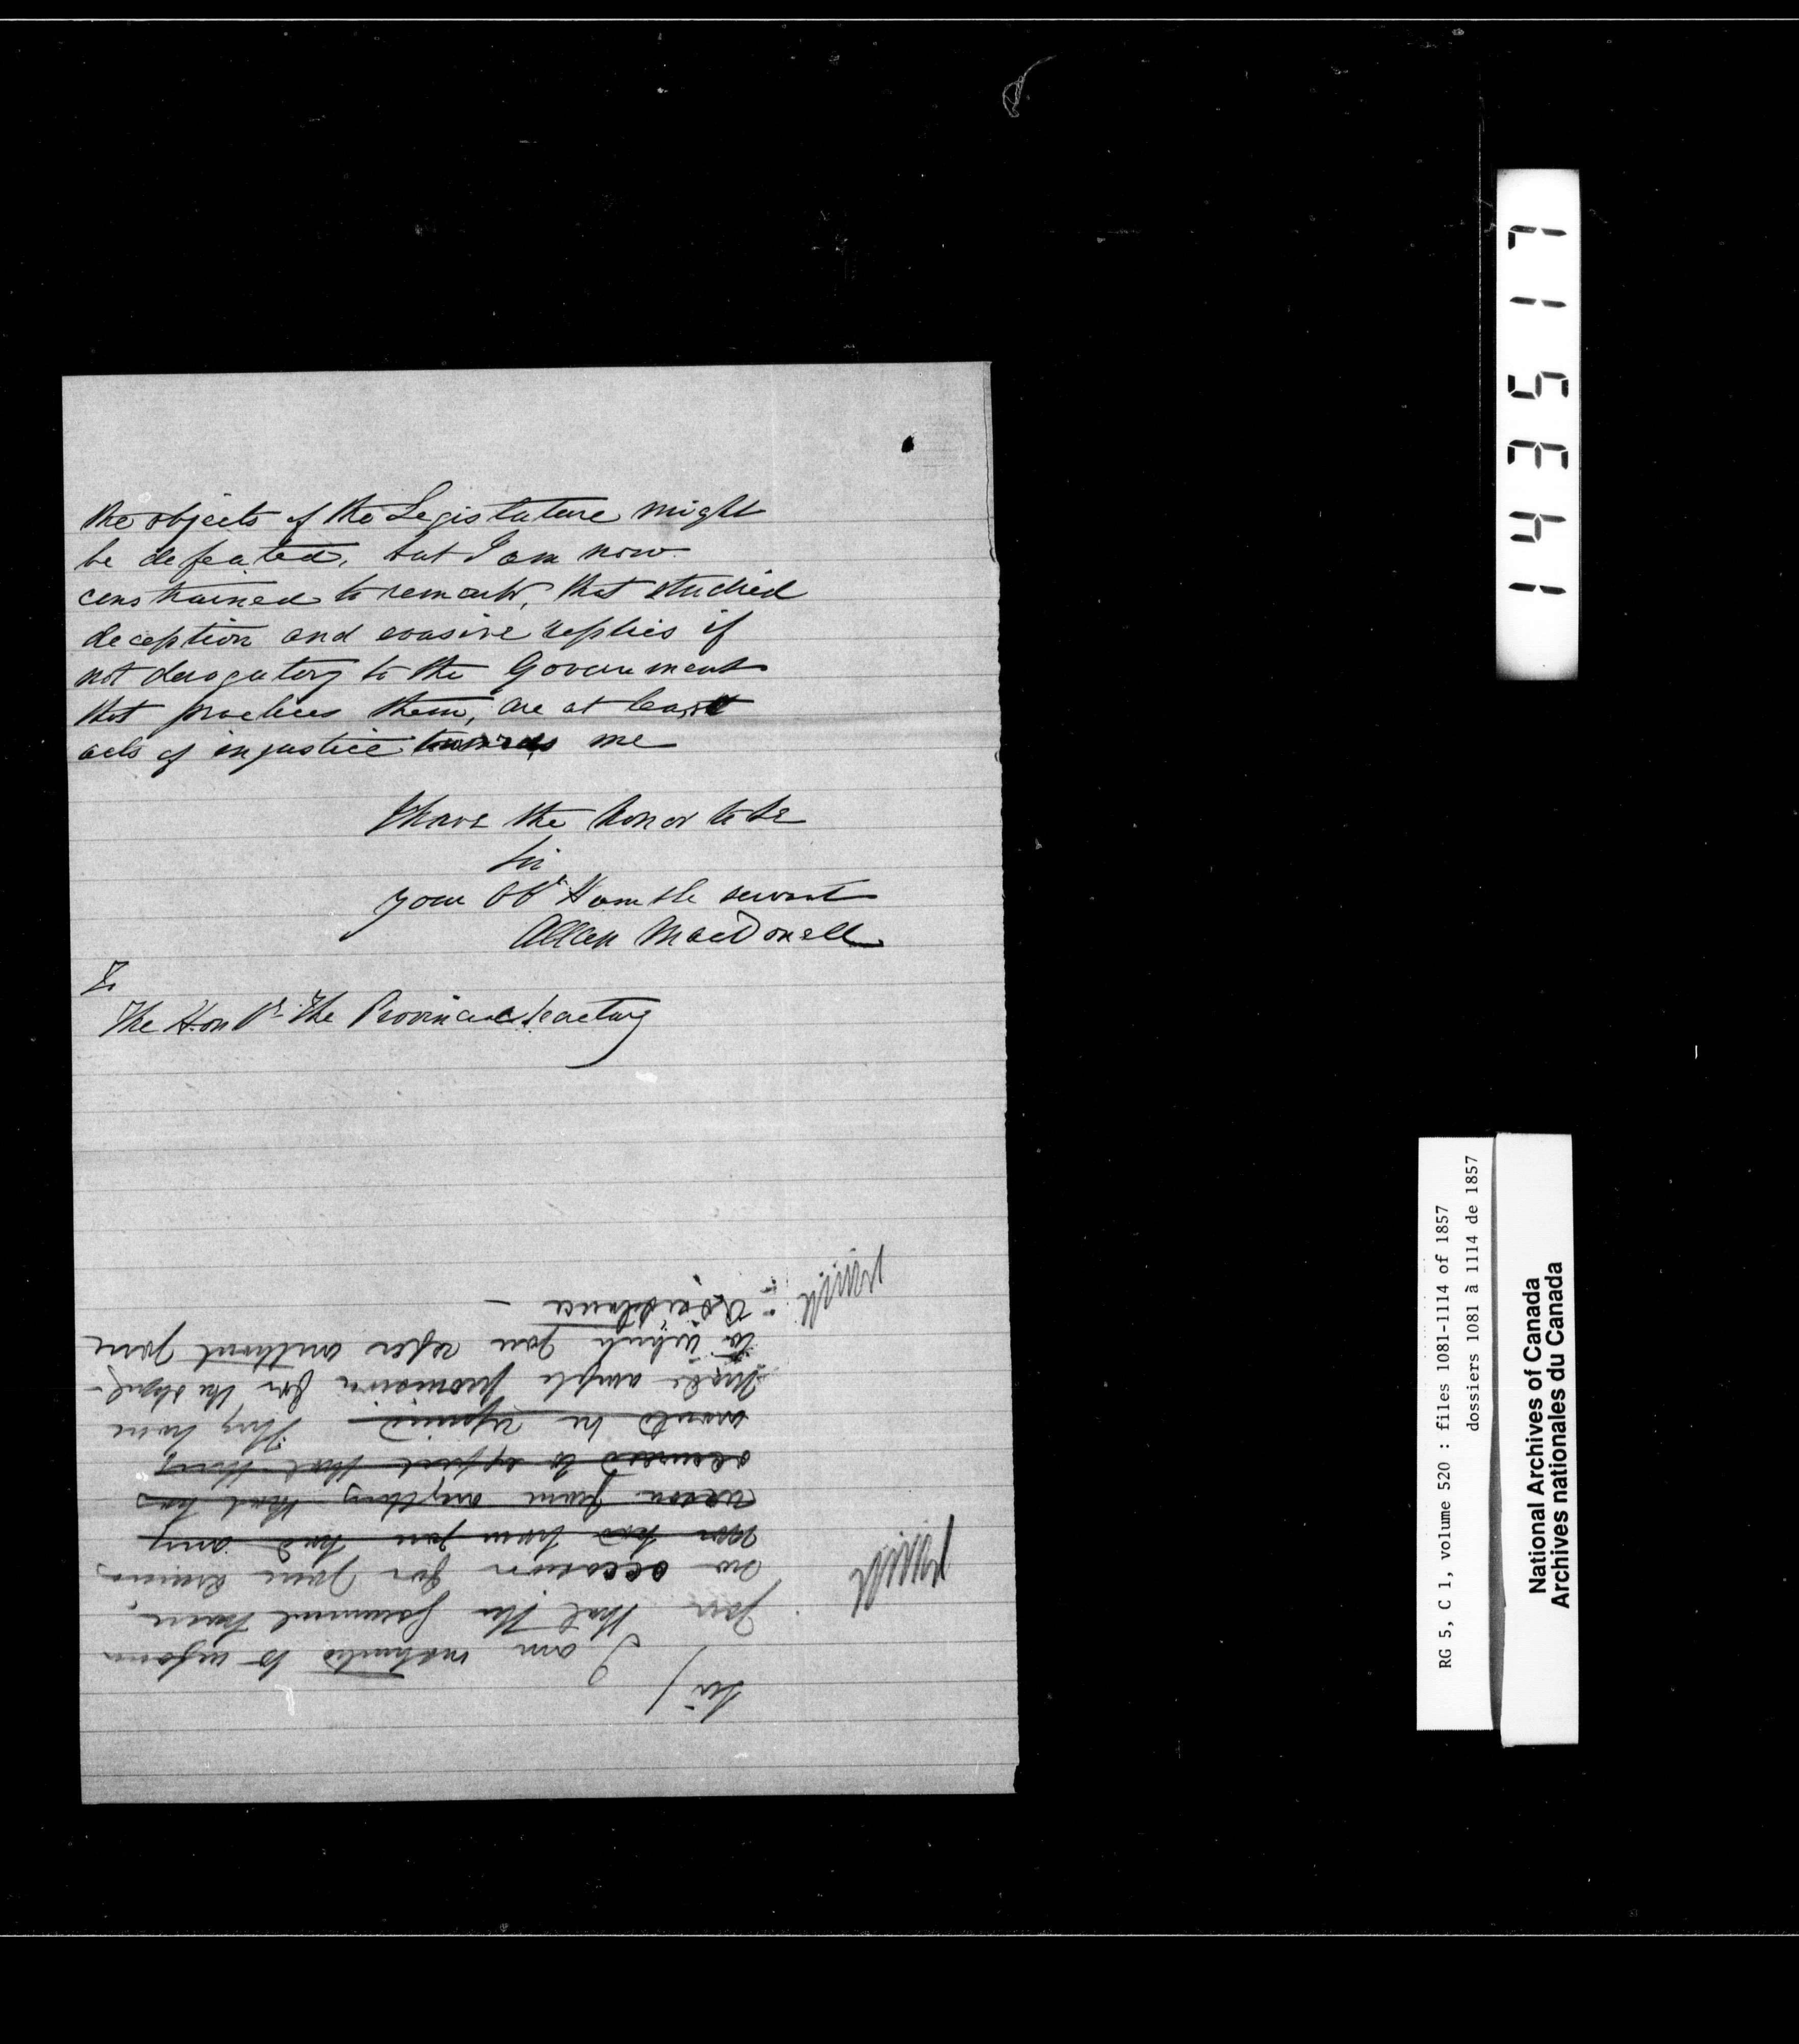 the objects of the Legislature might
be defeated, but I am now
constrained to remark, that studied
deception and evasive replies if
not derogatory to the Government
that practices them, are at least
acts of injustice towards me
I have the honor to be
Sir
your Obt Humble servant
Allan MacDonell
To
The Honble The Provincial Secretary
Sir/
I am instructed to inform
you that the Government have
no occasion for your
you had any
reason from anything that has
occurred to expect that they
would be required They have
made ample provision for the
to which you refer without your
Assistance –
143517
RG 5, C 1, volume 520 : files 1081-1114 of 1857
dossiers 1081 à 1114 de 1857
National Archives of Canada
Archives nationales du Canada